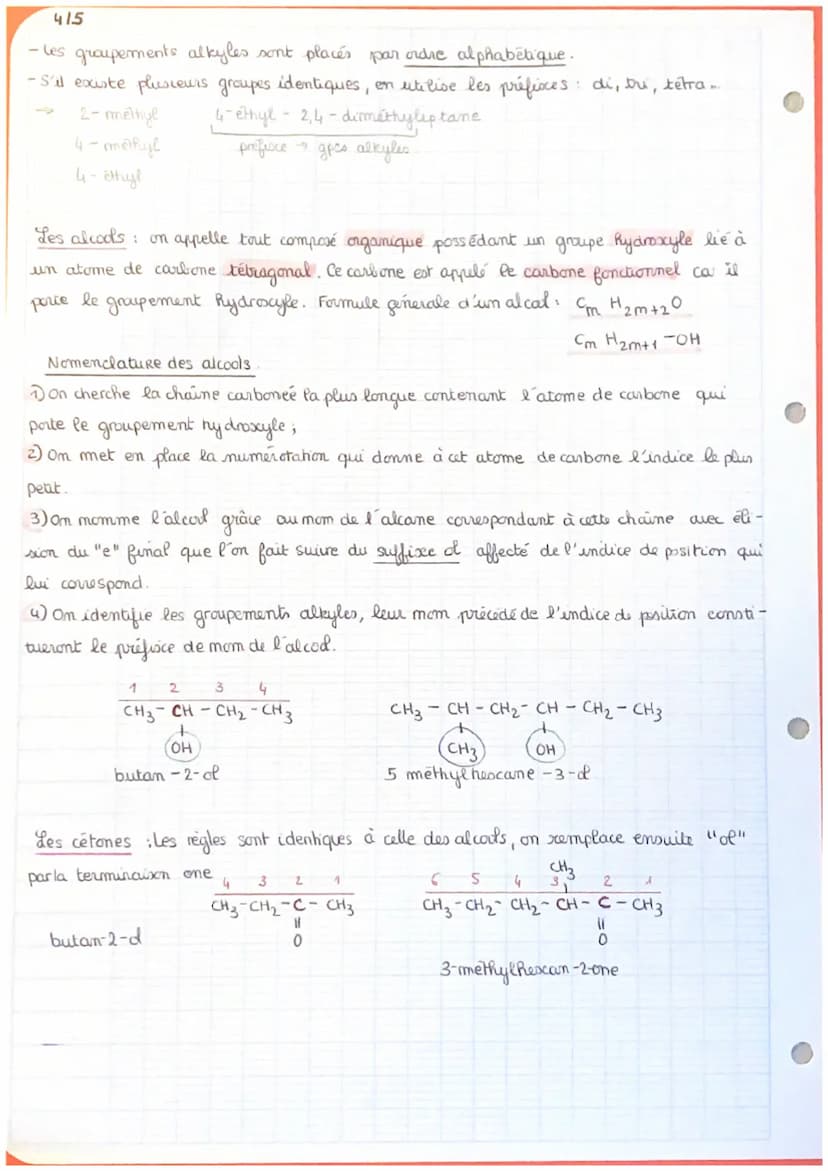 4/5
- Les groupements alkyles sont placés par ordre alphabétique.
- S'il existe plusieurs groupes identiques, on utilise les préfixes : di, tri, tétra...
→ 2-méthyl 4-éthyl - 2,4-diméthyleptane
4-méthyl préfixe → gpes alkyles
4-éthyl
Les alcools : on appelle tout composé organique possédant un groupe hydroxyle lié à
un atome de carbone tétragonal. Ce carbone est appelé le carbone fonctionnel car il
porte le groupement hydroxyle. Formule générale d'un alcool : Cm H2m+2O
Cm H2m+1 -OH
Nomenclature des alcools
1) On cherche la chaîne carbonée la plus longue contenant l'atome de carbone qui
porte le groupement hydroxyle ;
2) On met en place la numérotation qui donne à cet atome de carbone l'indice le plus
petit.
3) On nomme l'alcool grâce au nom de l'alcane correspondant à cette chaîne avec éli-
sion du "e" final que l'on fait suivre du suffixe ol affecté de l'indice de position qui
lui correspond.
4) On identifie les groupements alkyles, leur nom précédé de l'indice de position consti-
tueront le préfixe de nom de l'alcool.
1 2 3 4
CH3 - CH - CH2 - CH3 CH3 - CH - CH2 - CH - CH2 - CH3
OH CH3 OH
butan-2-ol 5 méthylhexane-3-ol
Les cétones : Les règles sont identiques à celle des alcools, on remplace ensuite "ol"
par la terminaison one
CH3
4 3 2 1 6 5 4 3 2 1
CH3-CH2-C-CH3 CH3-CH2-CH2-CH-C-CH3
O O
butan-2-ol
3-méthylhexan-2-one